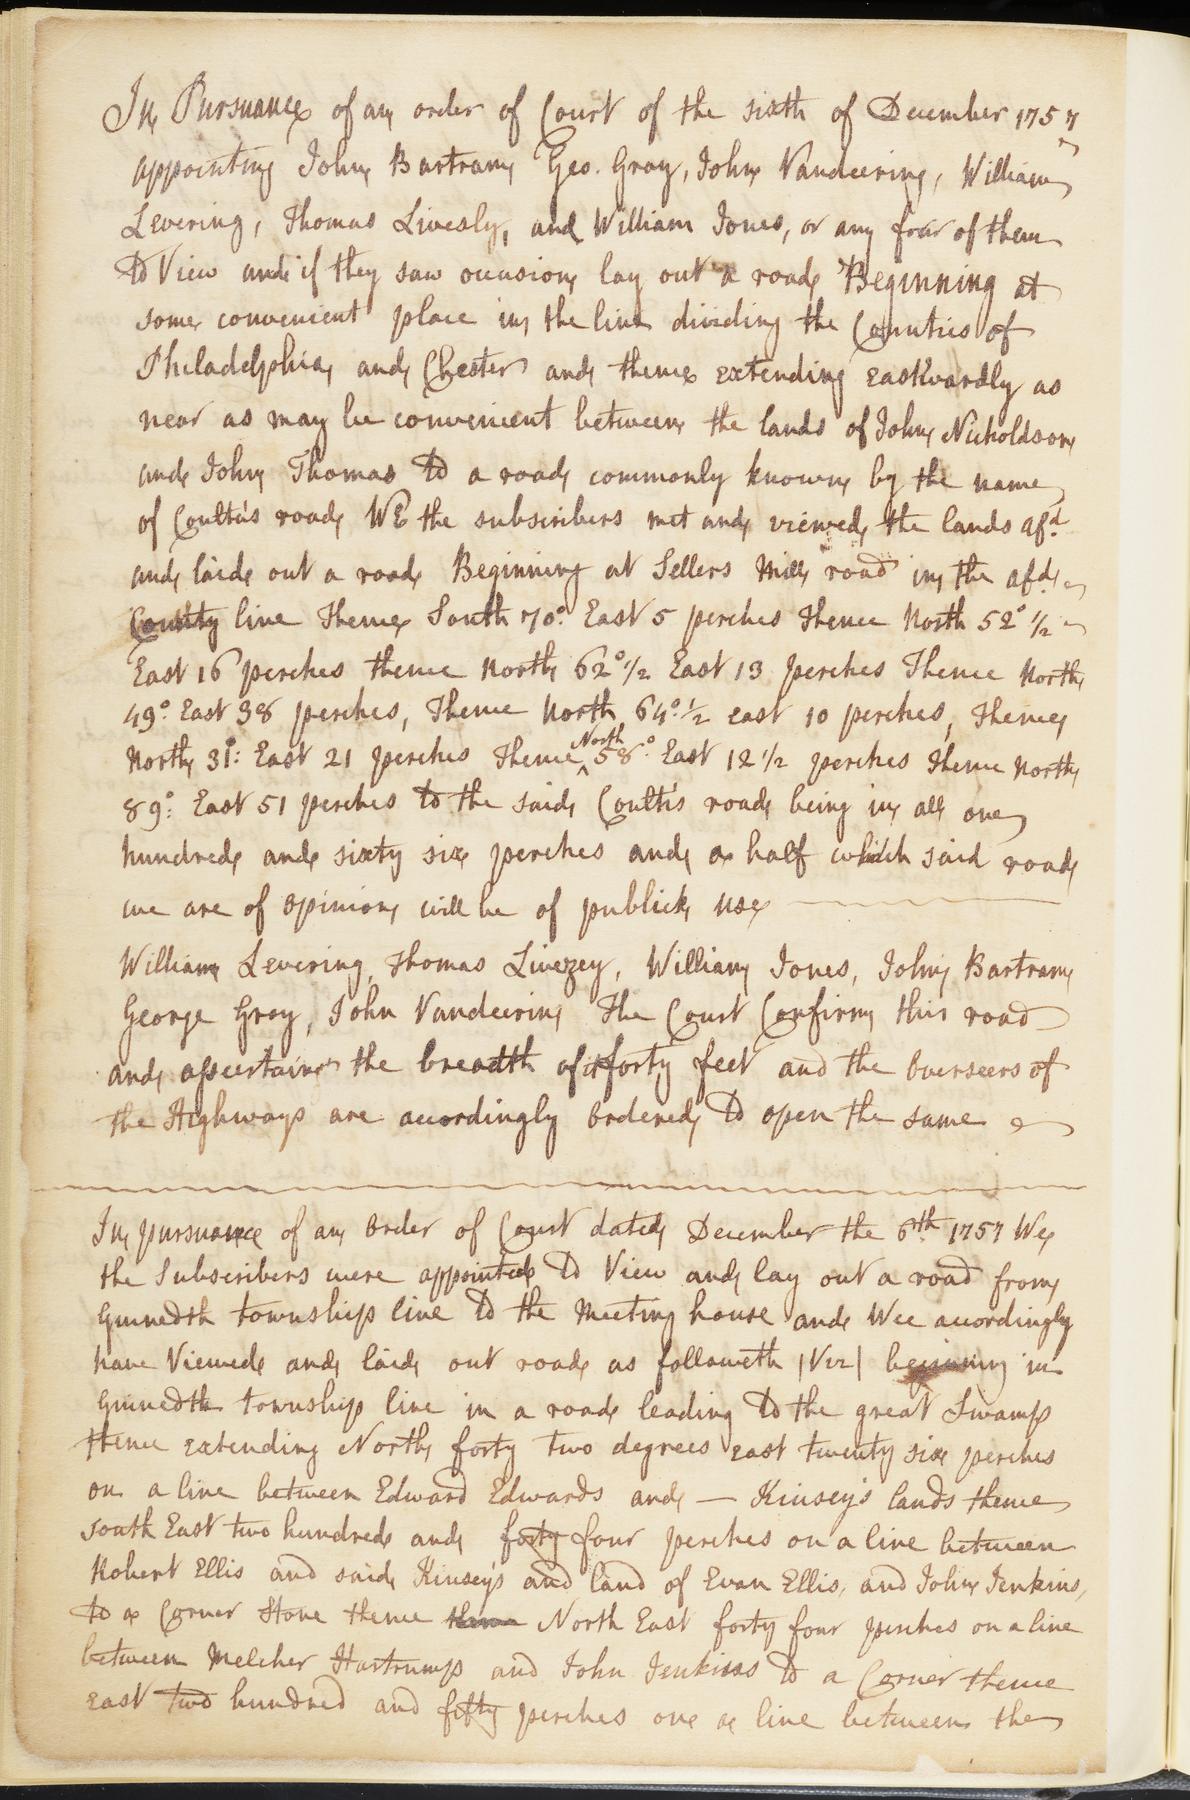 In Pursuance of an order of Court of the sixth of December 1757
appointing John Bartram Geo. Gray, John Vandeering, William
Levering, Thomas Livesly, and William Jones, or any four of them
to View and if they saw occasion lay out a road Beginning at
some convenient place in the line dividing the Counties of
Philadelphia, and Chester and thence extending eastwardly as
near as may be convenient between the lands of John Nicholdson
and John Thomas to a road commonly known by the name
of Coulta's road, WE the subscribers met and viewed the lands afd.
and laid out a road Beginning at Sellers Mill road in the afd.
County line Thence South 70° East 5 perches Thence North 52° ½
East 16 perches thence North 62° ½ East 13 perches Thence North
49° East 38 perches, Thence North 64° ½ east 10 perches, Thence
North 31° East 21 perches Thence ^North 58° East 12 ½ perches Thence North
89° East 51 perches to the said Coultis road being in all one
hundred and sixty six perches and a half which said road
we are of opinion will be of publick use
William Levering, Thomas Livezey, William Jones, John Bartram
George Gray, John Vandeering The Court Confirm this road
and assertain the breadth of it forty feet and the Overseers of
the Highways are accordingly Ordered to open the same
In pursuance of an Order of Court dated December the 6th 1757 We
the Subscribers were appointed to View and lay out a road from
Gwinedth township line to the Meeting house and Wee accordingly
have Viewed and laid out road as followeth |Viz| begining in
Gwinedth township line in a road leading to the great Swamp
thence extending North forty two degrees east twenty six perches
on a line between Edward Edwards and — Kinsey's lands thence
south East two hundred and forty four perches on a line between
Robert Ellis and said Kinsey's and land of Evan Ellis, and John Jenkins,
to a Corner Stone thence thence North East forty four perches on a line
between Melcher Hartrumps and John Jenkins to a Corner thence
east two hundred and fifty perches one a line between the